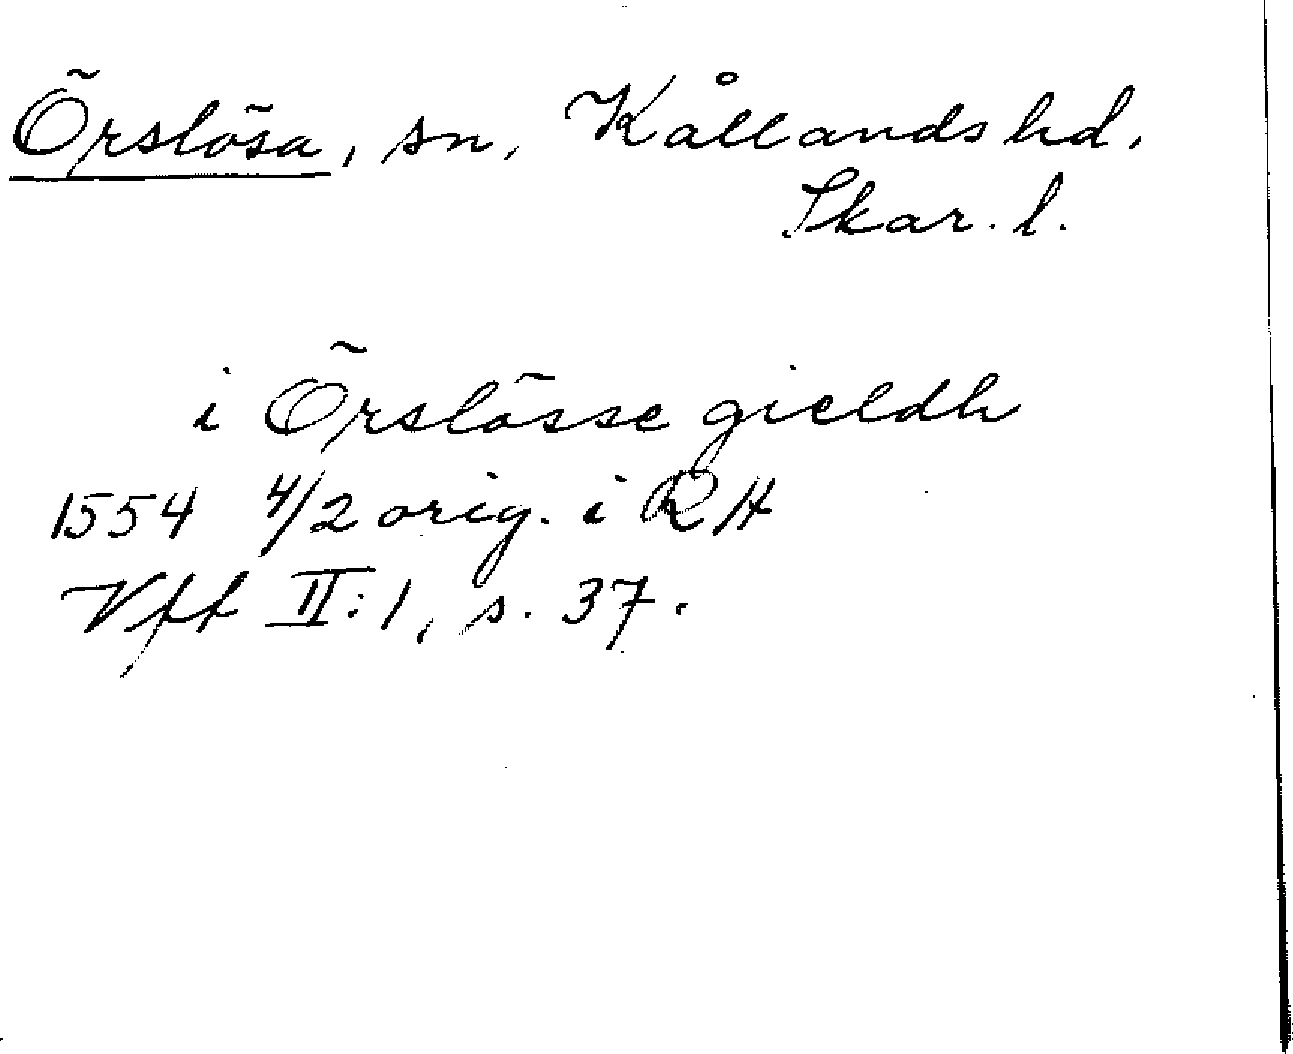 Örslösa, sn, Kållands hd.
Skar. l.
i Örslösse gieldh
1554 4/2 orig. i RA
Vff II:1, s. 37.